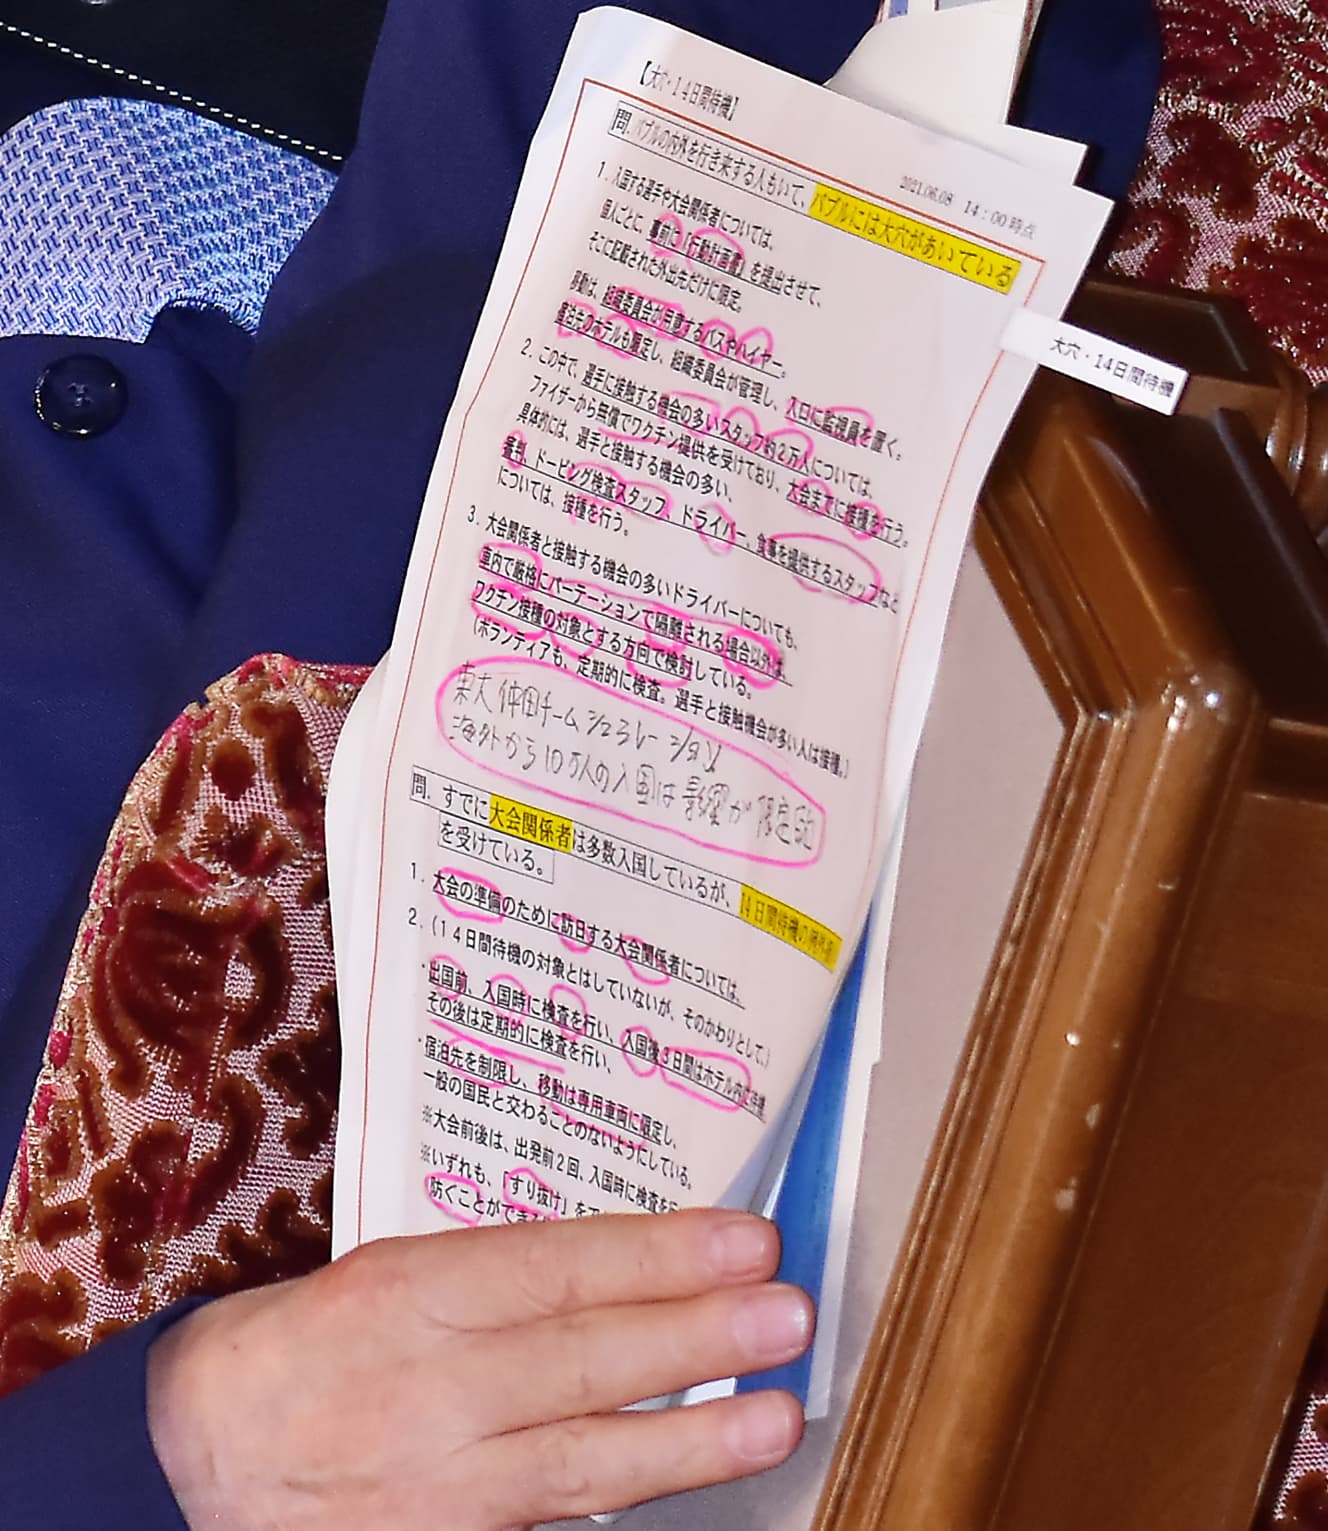 【大穴・14日間待機】
2021.06.08 14:00時点
問. バブルの内外を行き来する人もいて、バブルには大穴があいている
1. 入国する選手や大会関係者については、
個人ごとに、事前に「行動計画書」を提出させて、
そこに記載された外出先だけに限定。
移動は、組織委員会が用意するバスやハイヤー。
宿泊先のホテルも限定し、組織委員会が管理し、入口に監視員を置く。
2. この中で、選手に接触する機会の多いスタッフ約2万人については、
ファイザーから無償でワクチン提供を受けており、大会までに接種を行う。
具体的には、選手と接触する機会の多い、
審判、ドーピング検査スタッフ、ドライバー、食事を提供するスタッフなど
については、接種を行う。
3. 大会関係者と接触する機会の多いドライバーについても、
車内で厳格にパーテーションで隔離される場合以外は、
ワクチン接種の対象とする方向で検討している。
(ボランティアも、定期的に検査。選手と接触機会が多い人は接種。)
東大 仲田チーム シュミレーション
海外から10万人の入国は影響が限定的
問. すでに大会関係者は多数入国しているが、14日間待機の例外
を受けている。
1. 大会の準備のために訪日する大会関係者については、
2. (14日間待機の対象とはしていないが、そのかわりとして)
・出国前、入国時に検査を行い、入国後3日間はホテル内で待機
その後は定期的に検査を行い、
・宿泊先を制限し、移動は専用車両に限定し、
一般の国民と交わることのないようにしている。
※大会前後は、出発前2回、入国時に検査を
※いずれも、「すり抜け」を
防ぐことができる
大穴・14日間待機